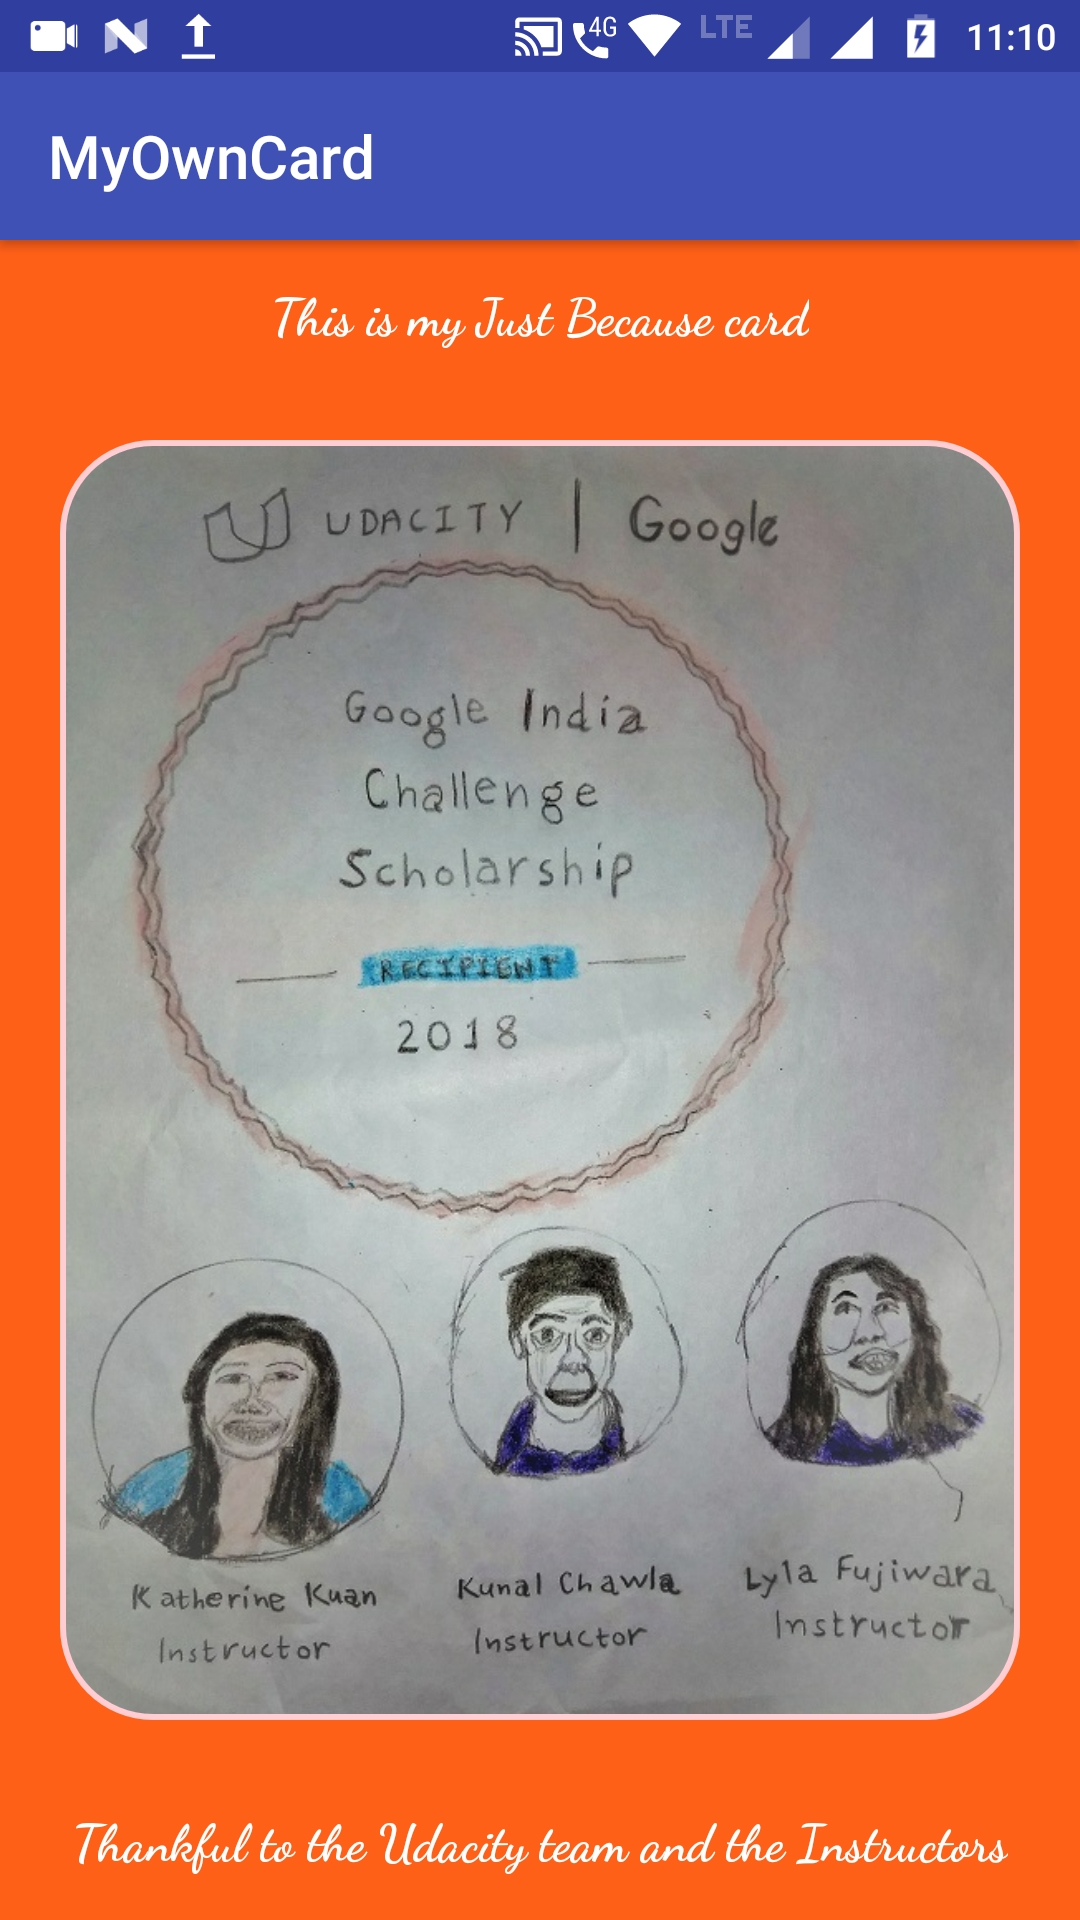 4G
LTE
11:10
MyOwnCard
This is my Just Because card
UDACITY | Google
Google India
Challenge
Scholarship
RECIPIENT
2018
Katherine Kuan
Instructor
Kunal Chawla
Instructor
Lyla Fujiwara
Instructor
Thankful to the Udacity team and the Instructors